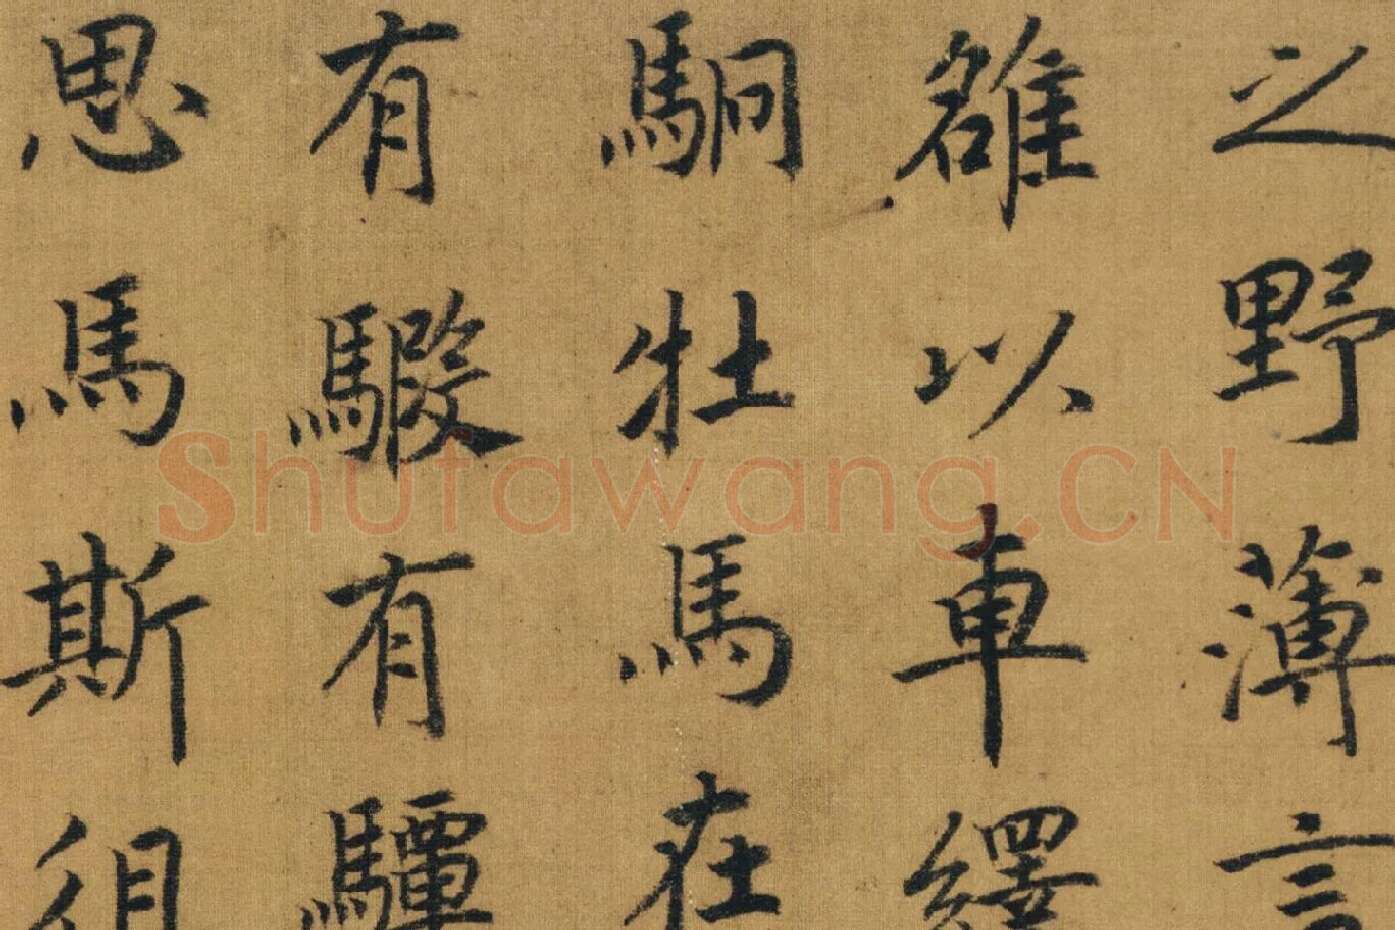 之野薄言
雒以車繹
駉牡馬在
有騢有驔
思馬斯徂
Shufawang.CN